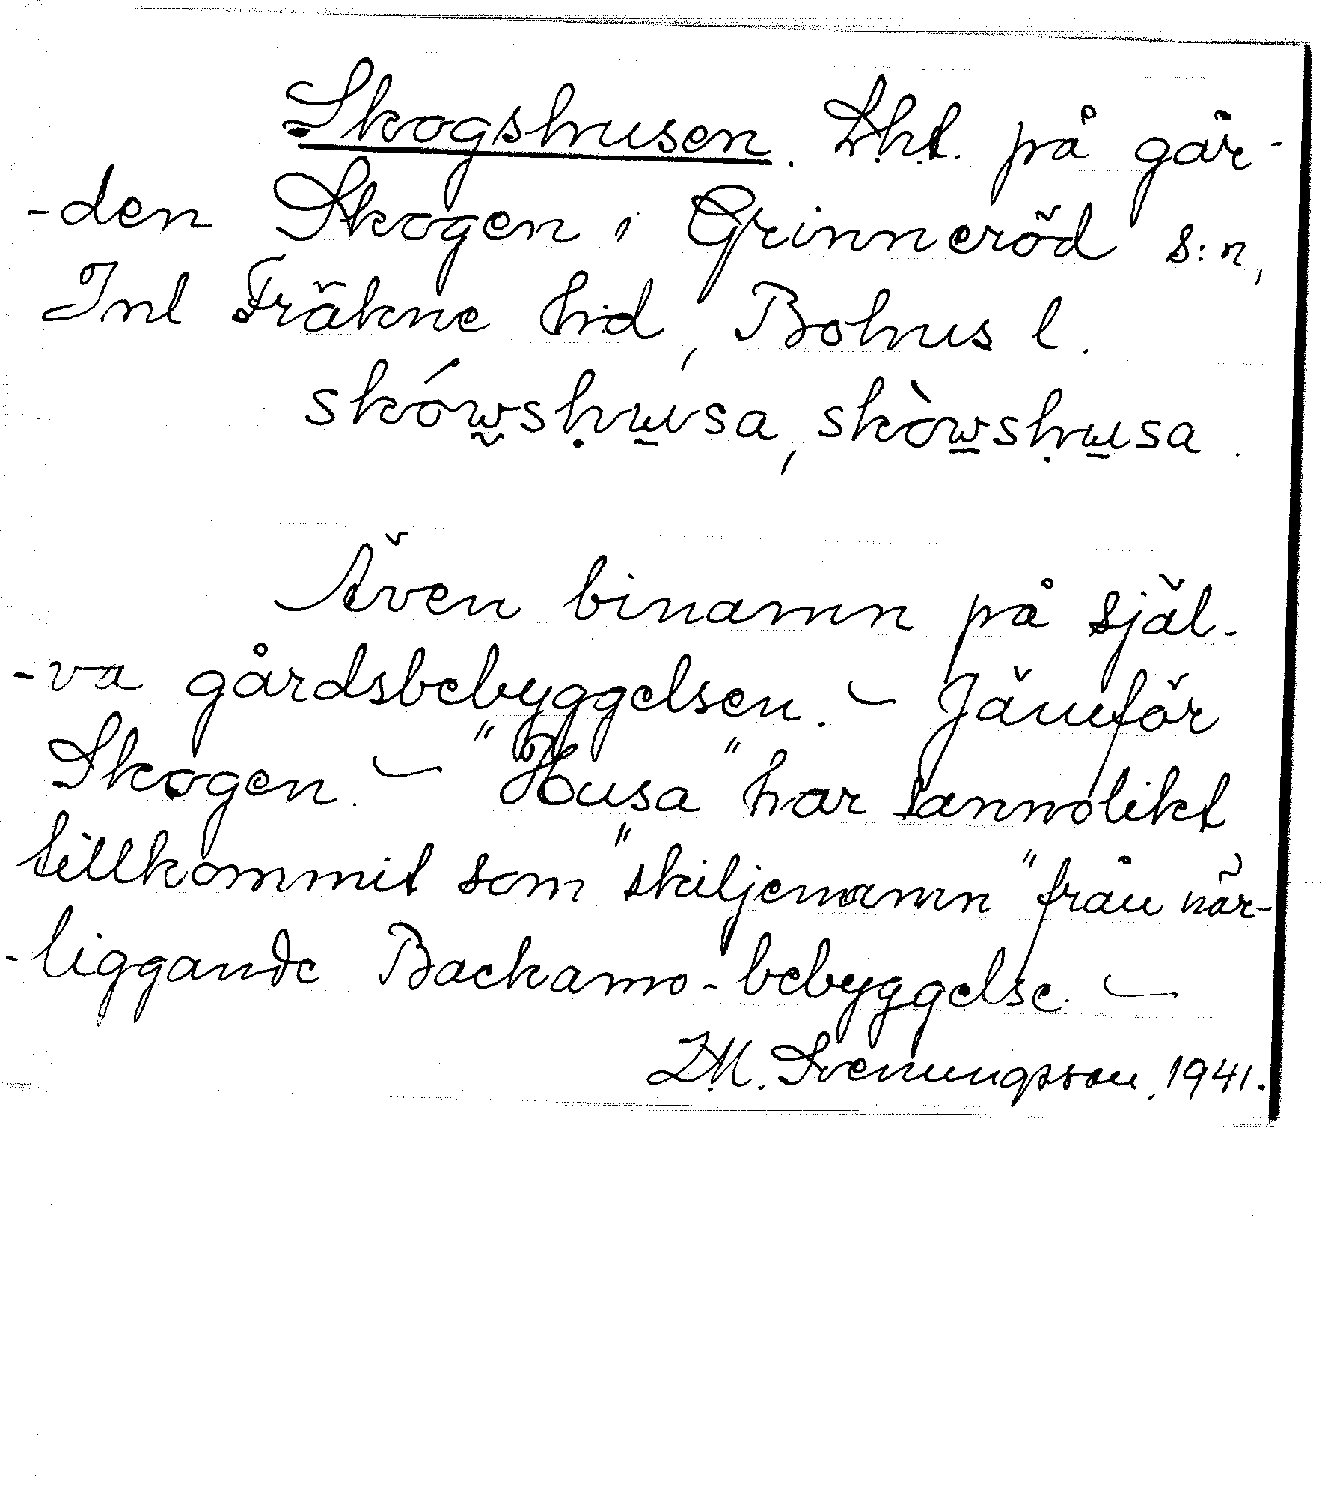 Skogshusen. Lht. på går-
-den Skogen i Grinneröd s:n,
Inl Fräkne hd, Bohus l.
skówshusa, skòwshusa.
Även binamn på själ-
-va gårdsbebyggelsen. – Jämför
Skogen. – "Husa" har sannolikt
tillkommit som "skiljenamn" från när-
-liggande Backamo-bebyggelse. –
Svenungsson, 1941.